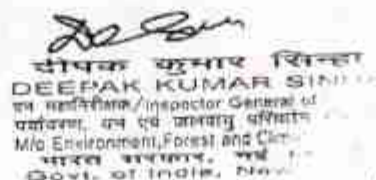 दीपक कुमार सिन्हा
DEEPAK KUMAR
वन महानिरीक्षक/Inspector General of
पर्यावरण, वन एवं जलवायु परिवर्तन
M/o Environment, Forest and
भारत सरकार, नई
Govt. of India,